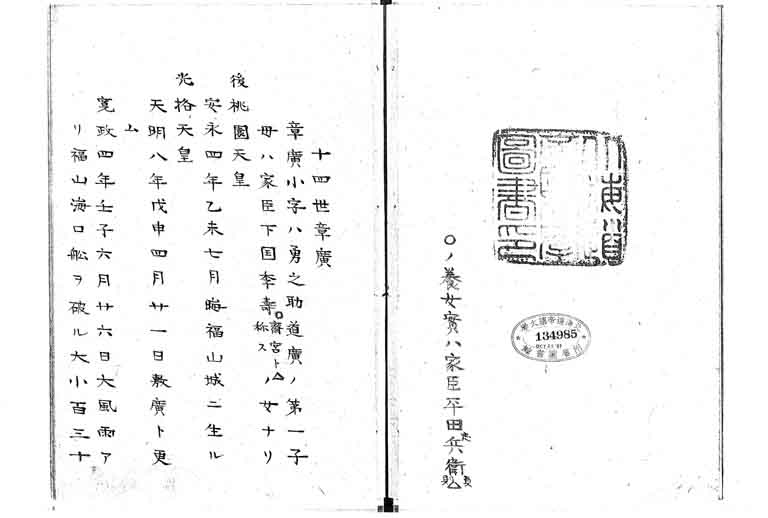 〇ノ養女實ハ家臣平田兵衛
134985
十四世章廣
章廣小字ハ勇之助道廣ノ第一子
母ハ家臣下国季寿ノ女ナリ
齋宮ト称ス
後桃園天皇
安永四年乙未七月晦福山城ニ生ル
光格天皇
天明八年戊申四月廿一日敷廣ト更
ム
寛政四年壬子六月廿六日大風雨ア
リ福山海口船ヲ破ル大小百三十